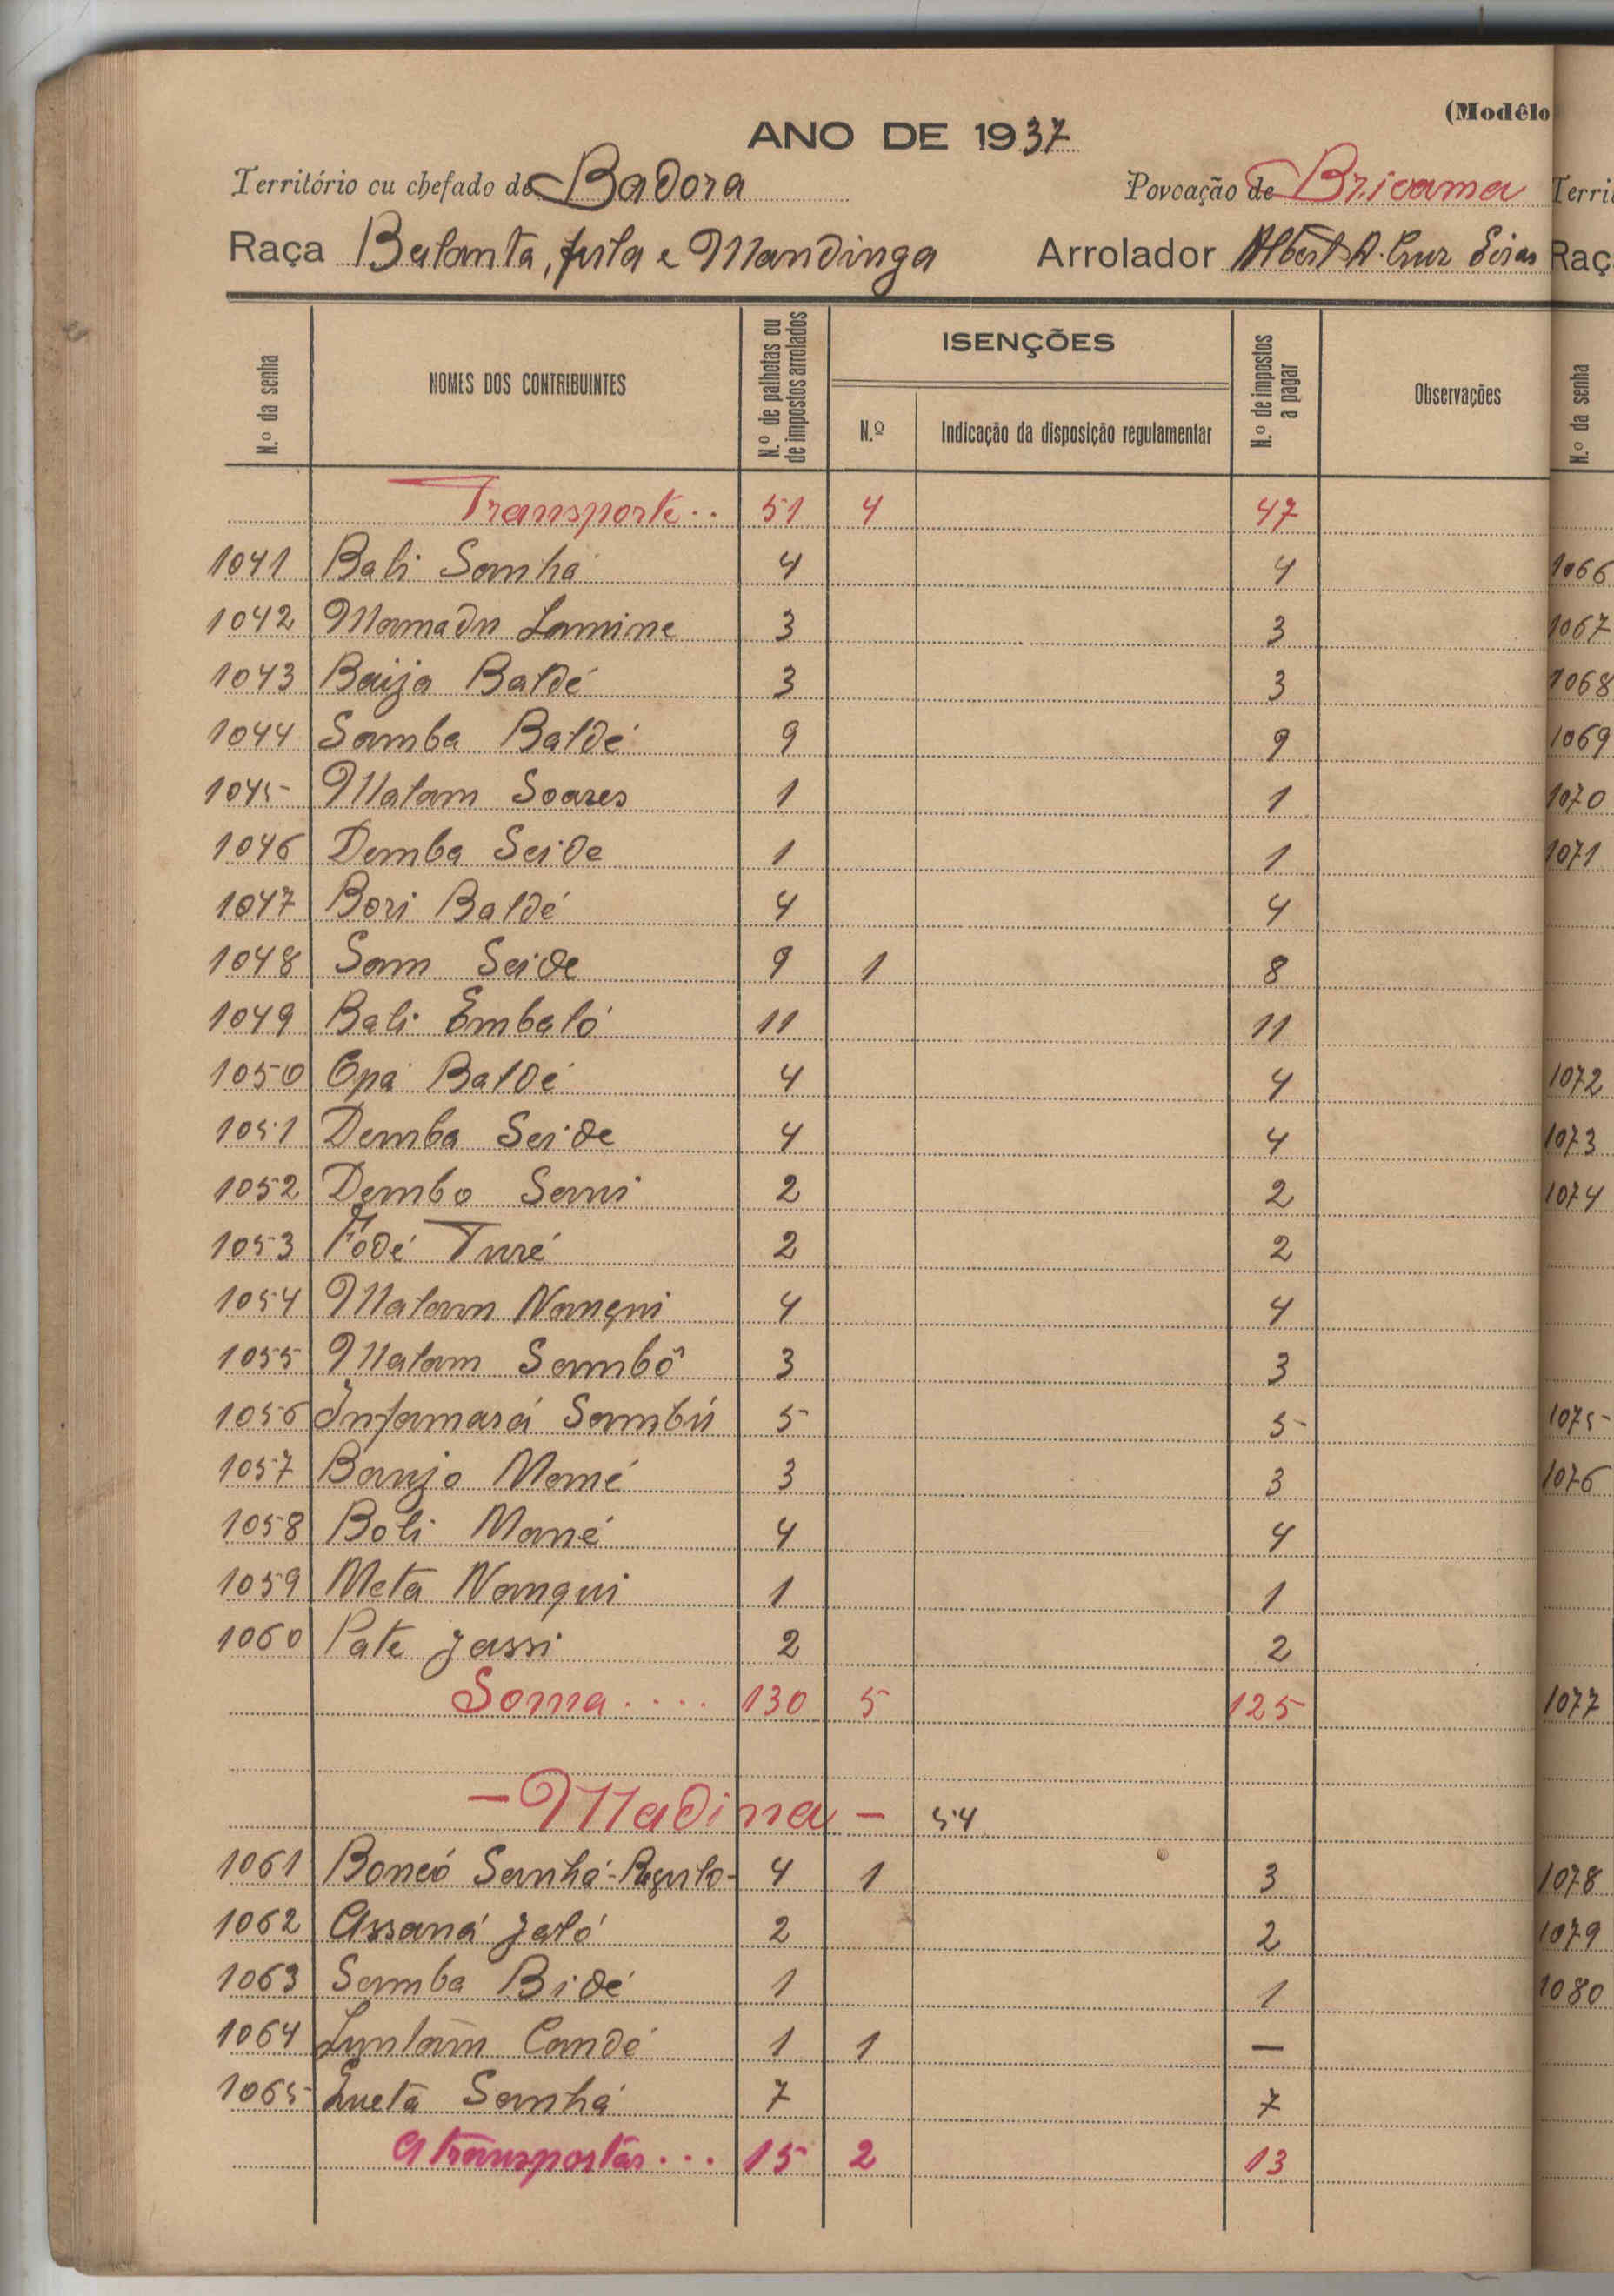 (Modêlo
ANO DE 1937
Território ou chefado de Badora Povoação de Bricama
Raça Balanta, fula e Mandinga Arrolador Albert A. Cruz
N.º da senha NOMES DOS CONTRIBUINTES N.º de palhetas ou de impostos arrolados ISENÇÕES N.º Indicação da disposição regulamentar N.º de impostos a pagar Observações
Transporte.. 51 4 47
1041 Bali Sanhá 4 4
1042 Mamadu Lamine 3 3
1043 Baija Baldé 3 3
1044 Samba Baldé 9 9
1045 Malam Soares 1 1
1046 Demba Seide 1 1
1047 Bori Baldé 4 4
1048 Sam Seide 9 1 8
1049 Bali Embaló 11 11
1050 Opá Baldé 4 4
1051 Demba Seide 4 4
1052 Dembo Sani 2 2
1053 Fodé Turé 2 2
1054 Malam Nanqui 4 4
1055 Malam Sambô 3 3
1056 Infamará Sambú 5 5
1057 Banjo Mané 3 3
1058 Boli Mané 4 4
1059 Meta Nanqui 1 1
1060 Pate Jassi 2 2
Soma.... 130 5 125
- Madina - 54
1061 Boncó Sanhá - Regulo - 4 1 3
1062 Assaná Jaló 2 2
1063 Samba Bidé 1 1
1064 Luntam Candé 1 1 —
1065 Queta Sanhá 7 7
A transportar... 15 2 13
Terri
Raç
N.º da senha
1066
1067
1068
1069
1070
1071
1072
1073
1074
1075
1076
1077
1078
1079
1080